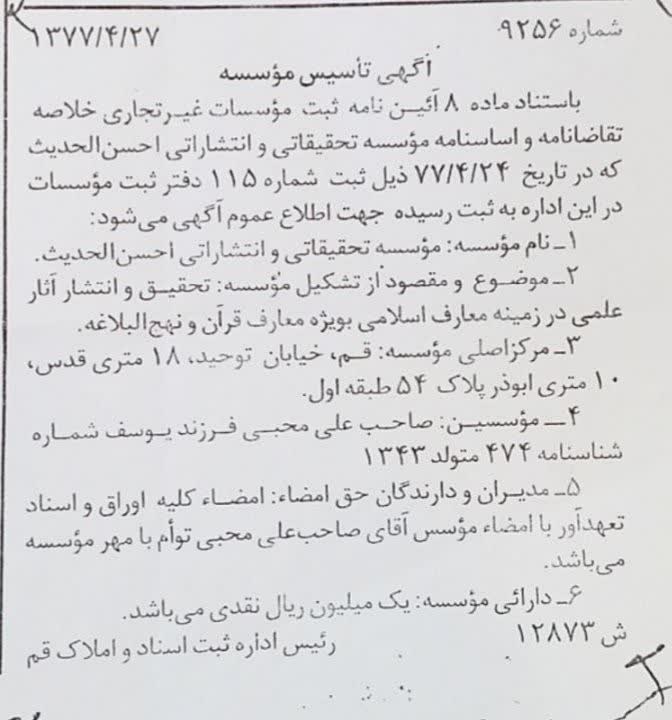 شماره ۹۲۵۶ ۱۳۷۷/۴/۲۷
آگهی تأسیس مؤسسه
باستناد ماده ۸ آئین نامه ثبت مؤسسات غیرتجاری خلاصه
تقاضانامه و اساسنامه مؤسسه تحقیقاتی و انتشاراتی احسن‌الحدیث
که در تاریخ ۷۷/۴/۲۴ ذیل ثبت شماره ۱۱۵ دفتر ثبت مؤسسات
در این اداره به ثبت رسیده جهت اطلاع عموم آگهی می‌شود:
۱ـ نام مؤسسه: مؤسسه تحقیقاتی و انتشاراتی احسن‌الحدیث.
۲ـ موضوع و مقصود از تشکیل مؤسسه: تحقیق و انتشار آثار
علمی در زمینه معارف اسلامی بویژه معارف قرآن و نهج‌البلاغه.
۳ـ مرکز اصلی مؤسسه: قم، خیابان توحید، ۱۸ متری قدس،
۱۰ متری ابوذر پلاک ۵۴ طبقه اول.
۴ـ مؤسسین: صاحب علی محبی فرزند یوسف شماره
شناسنامه ۴۷۴ متولد ۱۳۴۳
۵ـ مدیران و دارندگان حق امضاء: امضاء کلیه اوراق و اسناد
تعهدآور با امضاء مؤسس آقای صاحب‌علی محبی توأم با مهر مؤسسه
می‌باشد.
۶ـ دارائی مؤسسه: یک میلیون ریال نقدی می‌باشد.
ش ۱۲۸۷۳ رئیس اداره ثبت اسناد و املاک قم